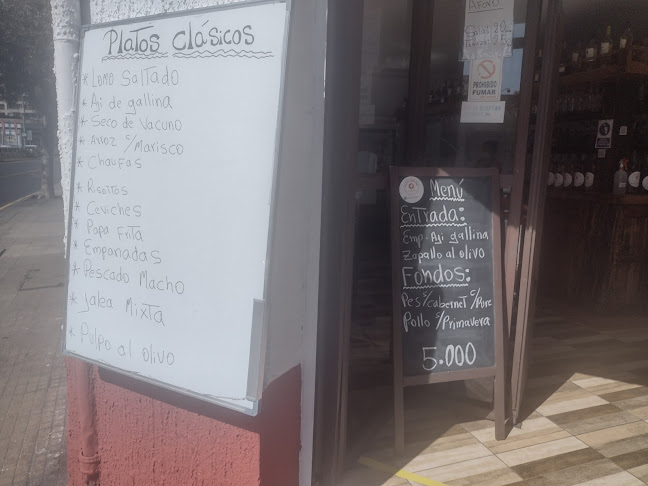 Platos Clásicos
* Lomo Saltado
* Aji de gallina
* Seco de Vacuno
* Arroz c/Marisco
* Chaufas
* Risottos
* Ceviches
* Papa Frita
* Empanadas
* Pescado Macho
* Jalea Mixta
* Pulpo al olivo
PROHIBIDO
FUMAR
Menú
Entrada:
Emp. Aji gallina
Zapallo al olivo
Fondos:
Pes s/Cabernet c/Pure
Pollo s/Primavera
5.000